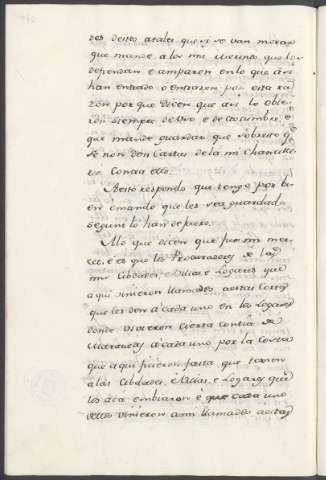 des destos atales que se van morar
que mande a los mis merinos que los
defiendan e amparen en lo que asi
han entrado o entraron por esta ra
zon por que dicen que asi lo obie
ron siempre de Uso e de costumbre, e
que mande guardar que sobresto q.e
se non den Cartas de la mi Chancille
ria contra ello.
A esto respondo que tengo por bi
en è mando que les sea guardado
segunt lo han de fuero.
A lo que dicen que fue mi mer
ced, e es que los Procuradores de las
mis Cibdades, è Villas, e Logares que
aqui vinieron llamados a estas Cortes
que les den à cada uno en los Logares
donde vinieron cierta contia de
Maravedis à cada uno por la Costa
que aqui ficieron fasta que tornen
a las Cibdades, è Villas, e Logares que
los acá embiaron è que cada uno
dellos vinieron a mi llamados a estas